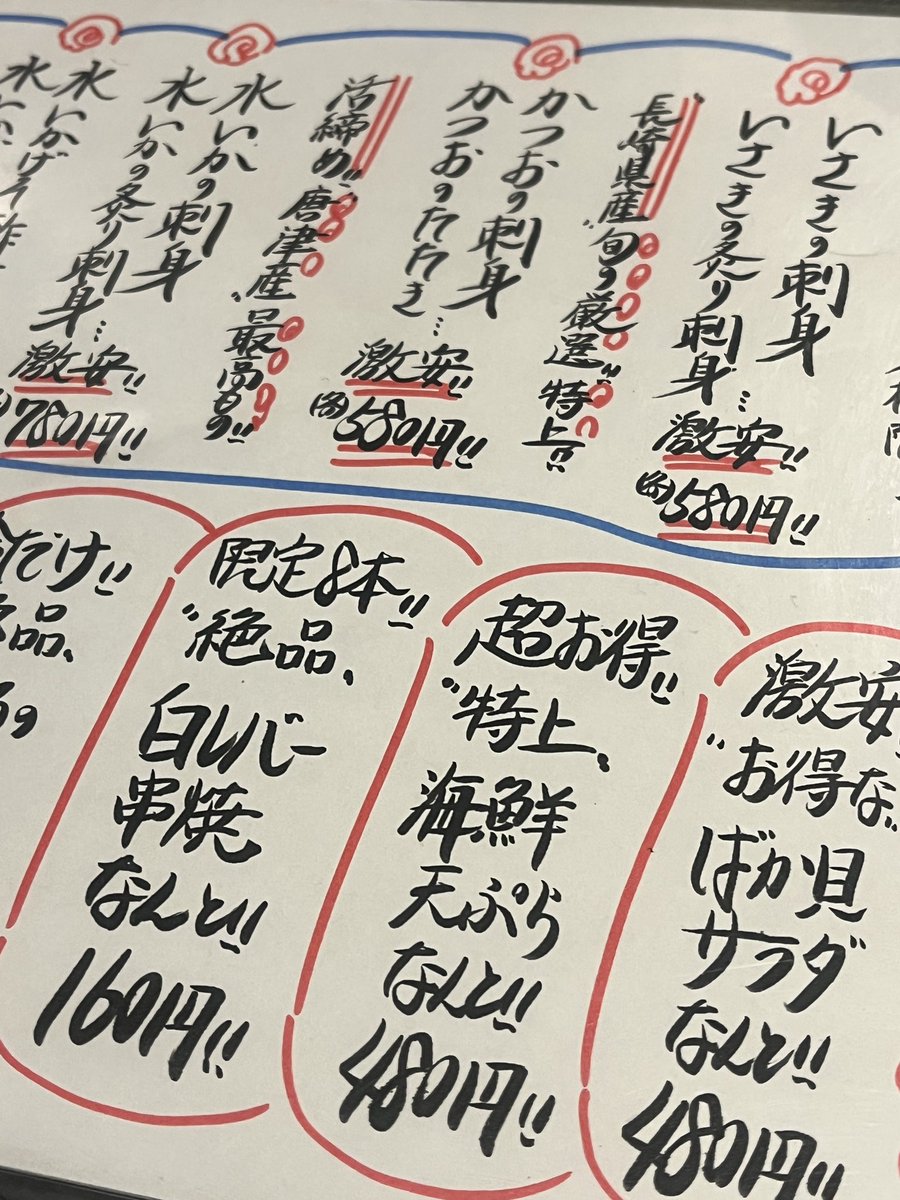 いさきの刺身
いさきの炙り刺身…激安!!
580円!!
長崎県産〝旬の厳選〟特上!!
かつおの刺身
かつおのたたき…激安!!
580円!!
活締め〝唐津産〟最高もの!!
水いかの刺身
水いかの炙り刺身…激安!!
780円!!
水いかげそ
激安
〝お得な〟
ばか貝
サラダ
なんと!!
480円!!
超お得!!
〝特上〟
海鮮
天ぷら
なんと!!
480円!!
限定8本!!
〝絶品〟
白レバー
串焼
なんと!!
160円!!
だけ!!
品〟